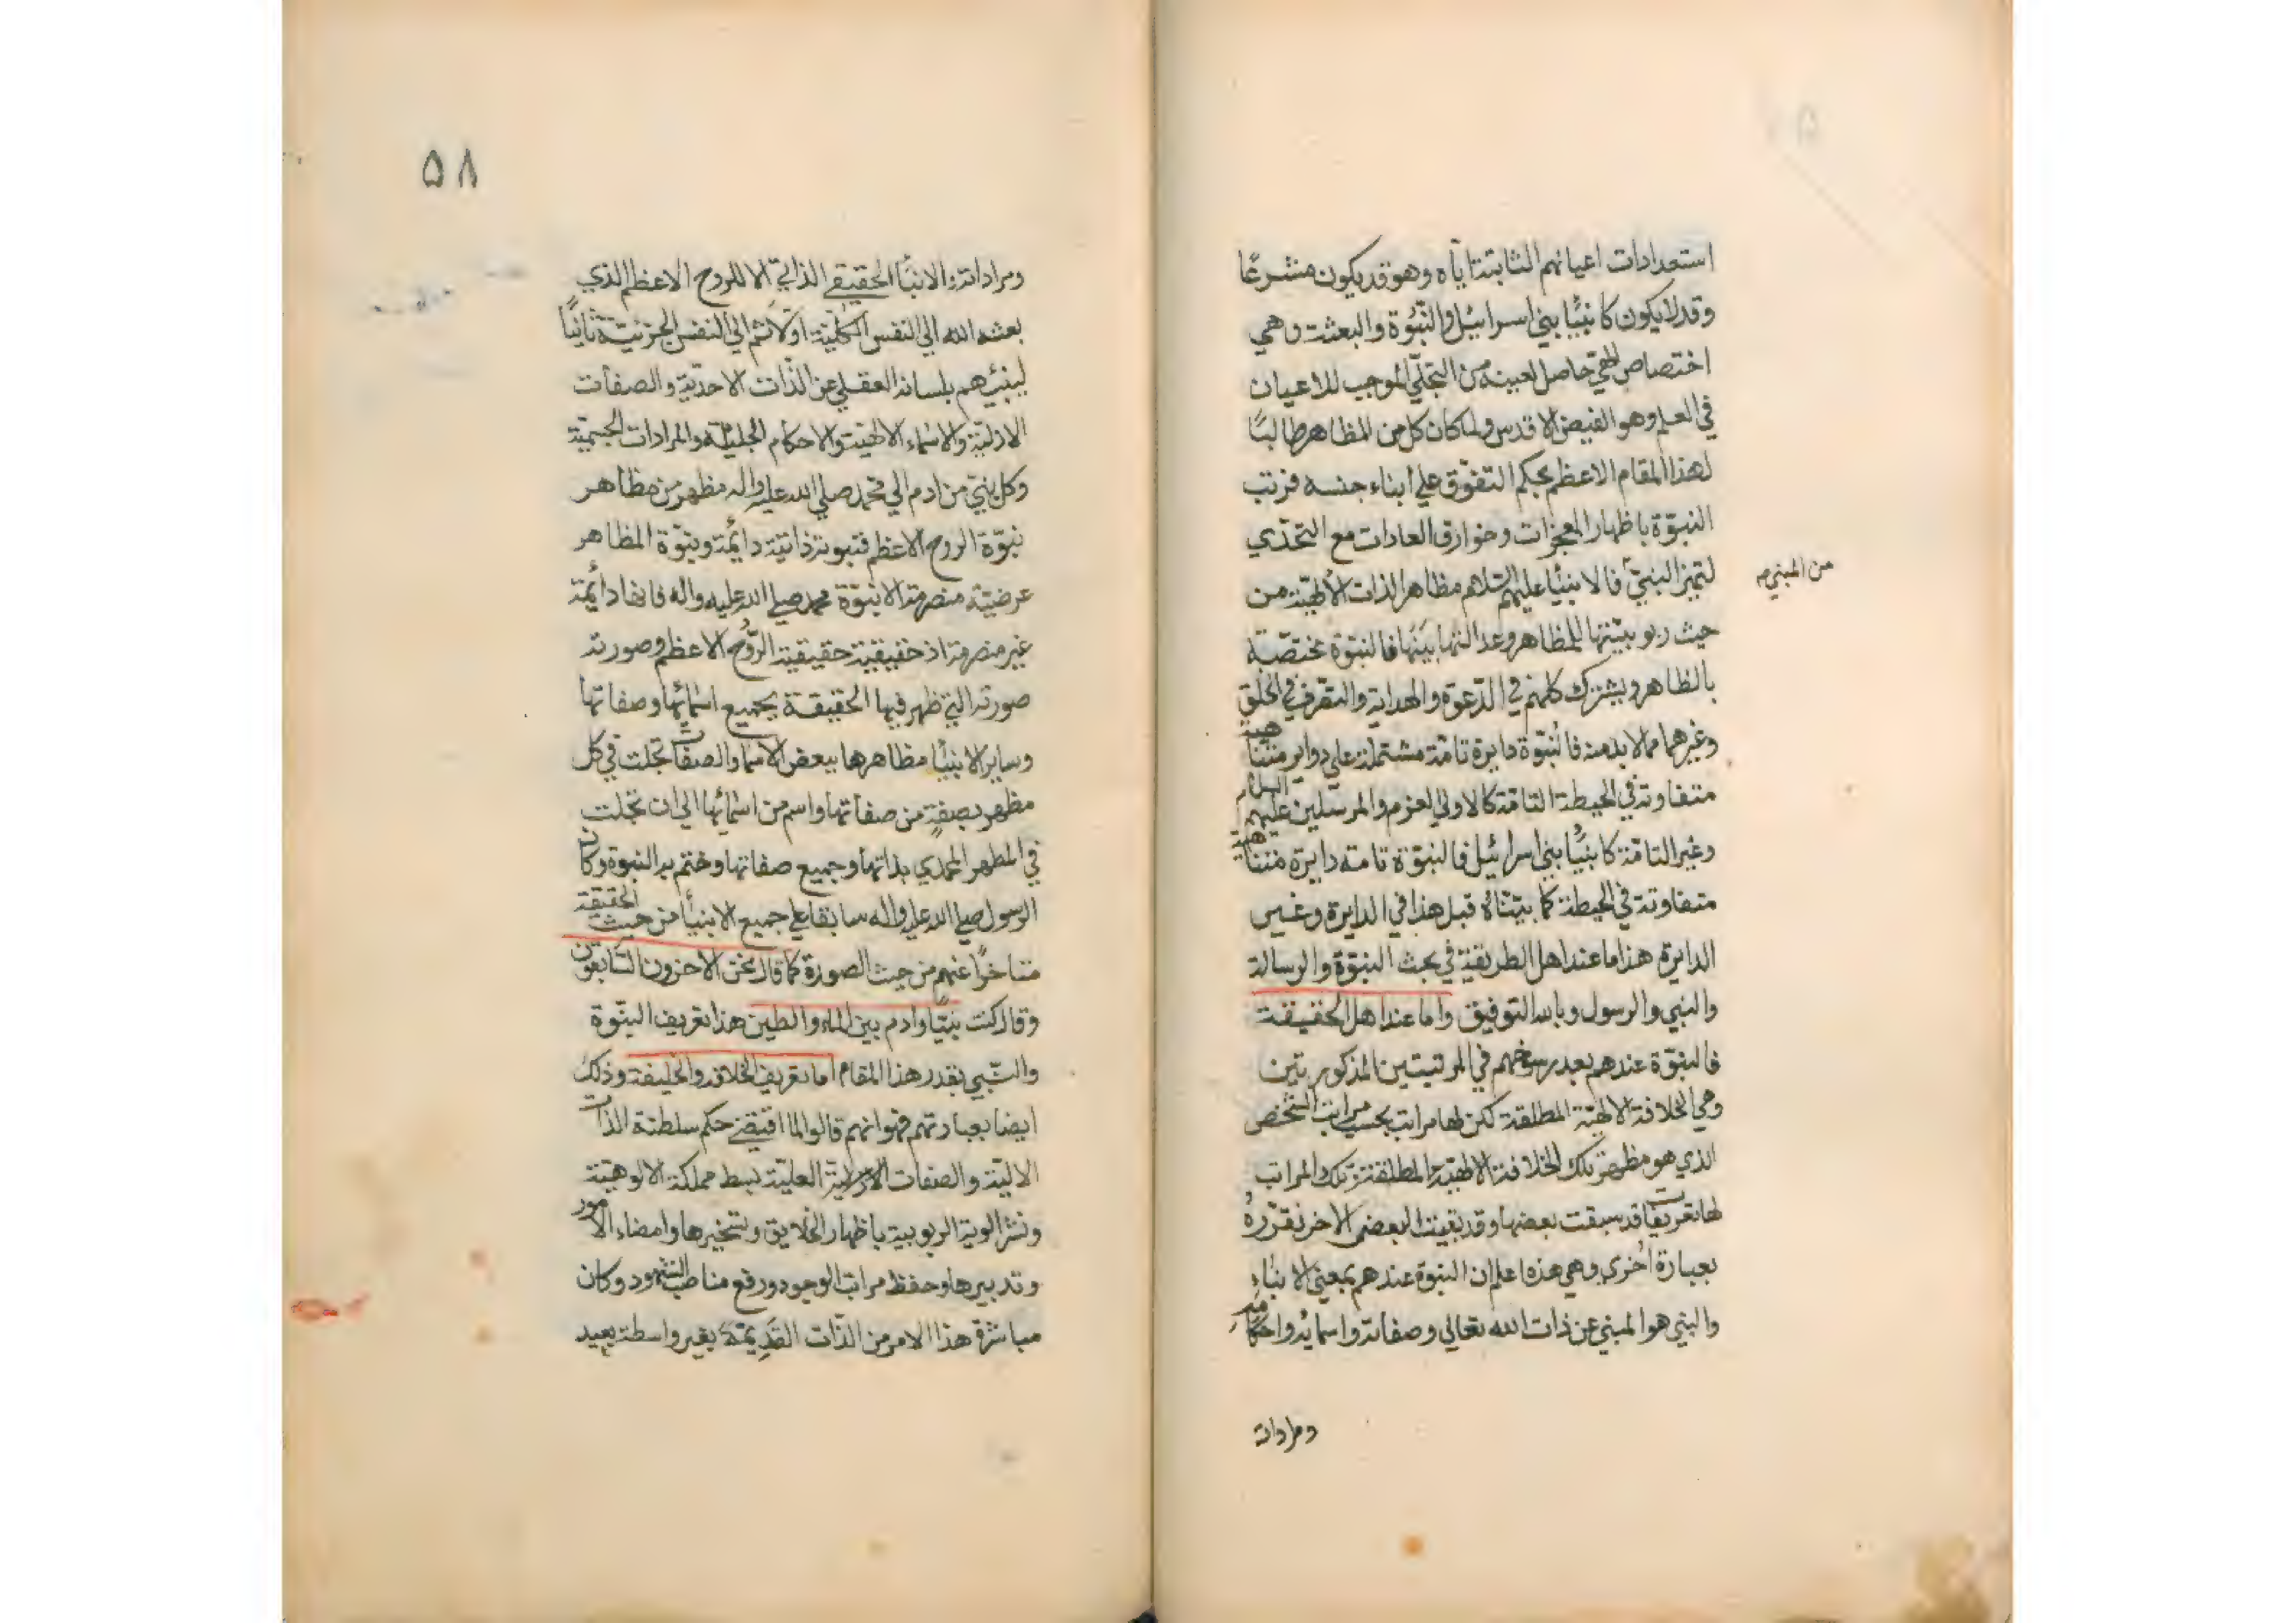 استعدادات اعيانهم الثابتة اياه وهو قد يكون مشرعًا
وقد لا يكون كانبيًا بني اسرائيل والنبوة والبعثة وهي
اختصاص الهي حاصل لعينه من التجلي الموجب للاعيان
في العلم وهو الفيض الاقدس ولما كان كل من المظاهر طالبًا
لهذا المقام الاعظم بحكم التفوق علي ابناء جنسه قرنت
النبوة باظهار المعجزات وخوارق العادات مع التحدي
لتميز النبي فالانبيا عليهم السلام مظاهر الذات الالهية من
من المبني
حيث ربوبيتها للمظاهر وعدالتها بينها فالنبوة مختصة
بالظاهر ويشترك كلهم في الدعوة والهداية والتصرف في الخلق
وغيرهما مما لا بد منه فالنبوة دايرة تامة مشتملة علي دواير متناهية
متفاوتة في الحيطة التامة كالاولي العزم والمرسلين عليهم السلام
وغير التامة كانبيا بني اسرائيل فالنبوة تامه دايرة متناهية
متفاوتة في الحيطة كما بيناه قبل هذا في الدايرة وغير
الدايرة هذا ما عند اهل الطريقة في بحث النبوة والرسالة
والنبي والرسول وبالله التوفيق واما عند اهل الحقيقة
فالنبوة عندهم بعد رسوخهم في المرتبتين المذكورتين
وهي الخلافة الالهية المطلقة لكن لها مراتب بحسب مراتب الشخص
الذي هو مظهر تلك الخلافة الالهية المطلقة وتلك المراتب
لها تعريفات قد سبقت بعضها وقد بقيت البعض الاخر نقرره
بعبارة اخري وهي هذه اعلم ان النبوة عندهم بمعني الانباء
والنبي هو المبني عن ذات الله تعالي وصفاته واسمايه واحكامه
ومراداته
۵۸
ومراداته والانبا الحقيقي الذاتي الا للروح الاعظم الذي
بعثه الله الي النفس الكلية اولا ثم الي النفس الجزئية ثانيًا
لينبئهم بلسانه العقلي عن الذات الاحدية والصفات
الازلية والاسماء الالهية والاحكام الجليلة والمرادات الجسمية
وكل نبي من ادم الي محمد صلي الله عليه واله مظهر من مظاهر
نبوة الروح الاعظم فنبوته ذاتية دائمة ونبوة المظاهر
عرضية منصرمة الا نبوة محمد صلي الله عليه واله فانها دائمة
غير منصرمة اذ حقيقية حقيقية الروح الاعظم وصورته
صورته التي ظهر فيها الحقيقة بجميع اسمائها وصفاتها
وساير الانبيا مظاهرها ببعض الاسما والصفات تجلت في كل
مظهر بصفة من صفاتها واسم من اسمائها الي ان تجلت
في المظهر المحمدي بذاتها وجميع صفاتها وختم به النبوة وكان
الرسول صلي الله عليه واله سابقا علي جميع الانبيا من حيث الحقيقة
متاخرًا عنهم من حيث الصورة كما قال نحن الاخرون السابقون
وقال كنت نبيًا وادم بين الماء والطين هذا تعريف النبوة
والنبي بقدر هذا المقام اما تعريف الخلافه والخليفة وذلك
ايضا بعبارتهم فهو انهم قالوا لما اقتضي حكم سلطنة الذات
الالية والصفات الازلية العلية بسط مملكة الالوهية
ونشر الوية الربوبية باظهار الخلايق وتسخيرها وامضاء الامور
وتدبيرها وحفظ مراتب الوجود ورفع مناصب الشهود وكان
مباشرة هذا الامر من الذات القديمة بغير واسطة بعيد